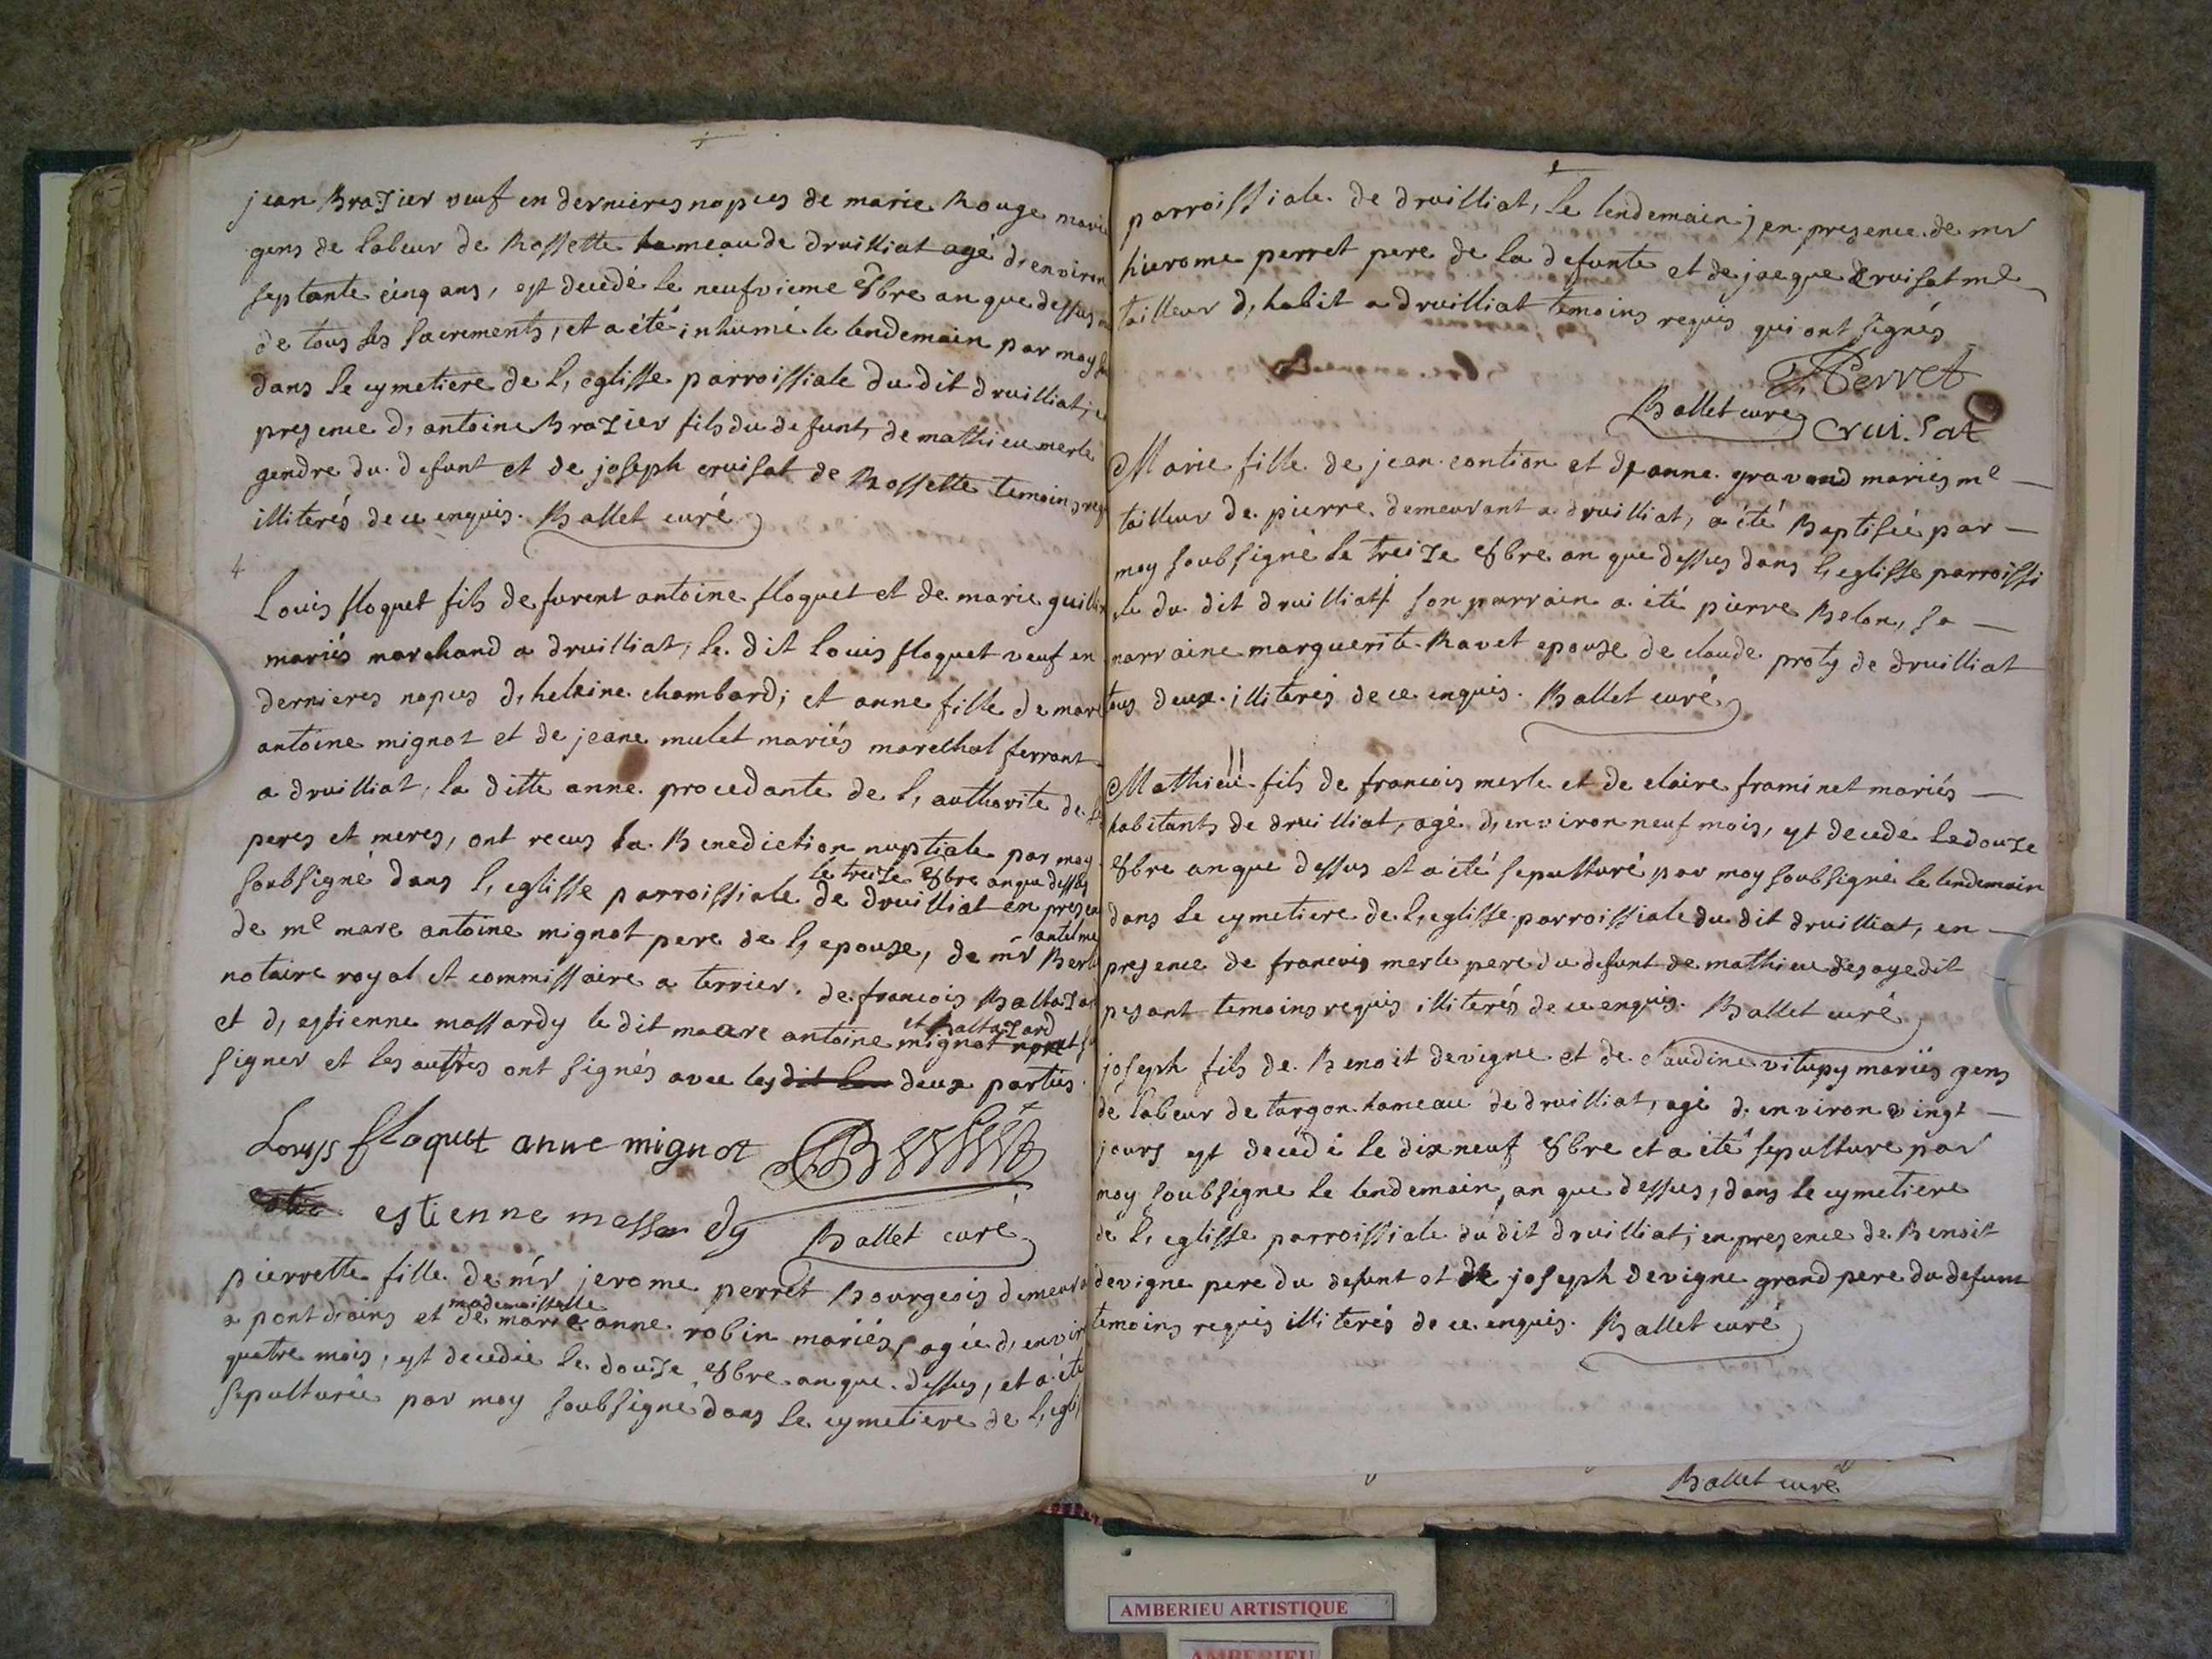 jean Brazier veuf en dernieres nopces de marie Rouge
gens de labeur de Rossette hameau de druilliat agé d, environ
septante cinq ans, est decedé le neufvieme 8bre an que dessus
de tous ses sacrements, et a été inhumé le lendemain par moy
dans le cymetiere de l, eglisse parroissiale du dit druilliat,
presence d, antoine Brazier fils du defunt, de mathieu merle
gendre du defunt et de joseph cruisat de Rossette temoins
illiterés de ce enquis. Ballet curé
Louis floquet fils de furent antoine floquet et de marie
mariés marchand a druilliat, le dit louis floquet veuf en
dernieres nopces d, heleine chambard; et anne fille de marc
antoine mignot et de jeane mulet mariés marechal ferrant
a druilliat, la ditte anne procedante de l, authorite de
peres et meres, ont recus la Benediction nuptiale par moy
le treize 8bre an que dessus
soubsigné dans l, eglisse parroissiale de druilliat en
antelme
de me marc antoine mignot pere de l, epouze, de mr
notaire royal et commissaire a terrier. de francois
et d, estienne massardy le dit marc antoine mignot
et Baltazard
signer et les autres ont signés avec les deux parties
Louys floquet anne mignot
estienne massardy Ballet curé
pierrette fille de mr jerome perret Bourgeois
mademoiselle
a pont d'ains et de marie anne robin mariés, agée d,
quatre mois, est decedée le douze 8bre an que dessus, et a été
sepulturée par moy soubsigné dans le cymetiere de
parroissiale de druilliat, le lendemain; en presence de mr
hierome perret pere de la defunte et de jacque Cruisat me
tailleur d, habit a druilliat temoins requis qui ont signés
Perret
Ballet curé Crui.sat
Marie fille de jean contion et d, anne gravand mariés me
tailleur de pierre demeurant a druilliat, a été Baptisée par
moy soubsigné le treize 8bre an que dessus dans l, eglisse parroissi
le du dit druilliat, son parrain a été pierre Belon, sa
marraine marguerite Ravet epouze de claude proty de druilliat
tous deux illiterés de ce enquis. Ballet curé
Mathieu fils de francois merle et de claire framinet mariés
habitants de druilliat, agé d, environ neuf mois, est decedé le douze
8bre an que dessus et a été sepulturé par moy soubsigné le lendemain
dans le cymetiere de l, eglisse parroissiale du dit druilliat, en
presence de francois merle pere du defunt de mathieu desaye dit
pesant temoins requis illiterés de ce enquis. Ballet curé
joseph fils de Benoit devigne et de claudine vitupy mariés gens
de labeur de turgon hameau de druilliat, agé d, environ vingt
jours est decedé le dixneuf 8bre et a été sepulture par
moy soubsigné le lendemain, an que dessus, dans le cymetiere
de l, eglisse parroissiale du dit druilliat; en presence de Benoit
devigne pere du defunt et de joseph devigne grand pere du defunt
temoins requis illiterés de ce enquis. Ballet curé
Ballet curé
AMBERIEU ARTISTIQUE
AMBERIEU